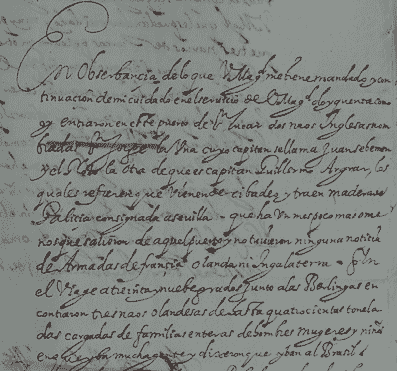 En Observancia de lo que V Magd me tiene mandado, y con
tinuación de mi cuidado en el servicio de V Magd doy quenta como
oy entraron en este puerto de St lucar dos naos Inglesas nom
bradas la Una cuyo capitan se llama Juan
y el la otra de que es capitan Guillermo los
quales refirieron que Vienen de y traen madera de
Galicia consignada a sevilla que ha Un mes poco mas o me
nos que salieron de aquel puerto y no tuvieron ninguna noticia
de Armadas de francia olanda ni ingalaterra En
el Viage a treinta y nueve grados junto a las Berlingas en
contraron tres naos olandesas de hasta quatrocientas tonela
das cargadas de familias enteras de hombres mugeres y niños
en que yba mucha gente y dixeron que yban al Brasil